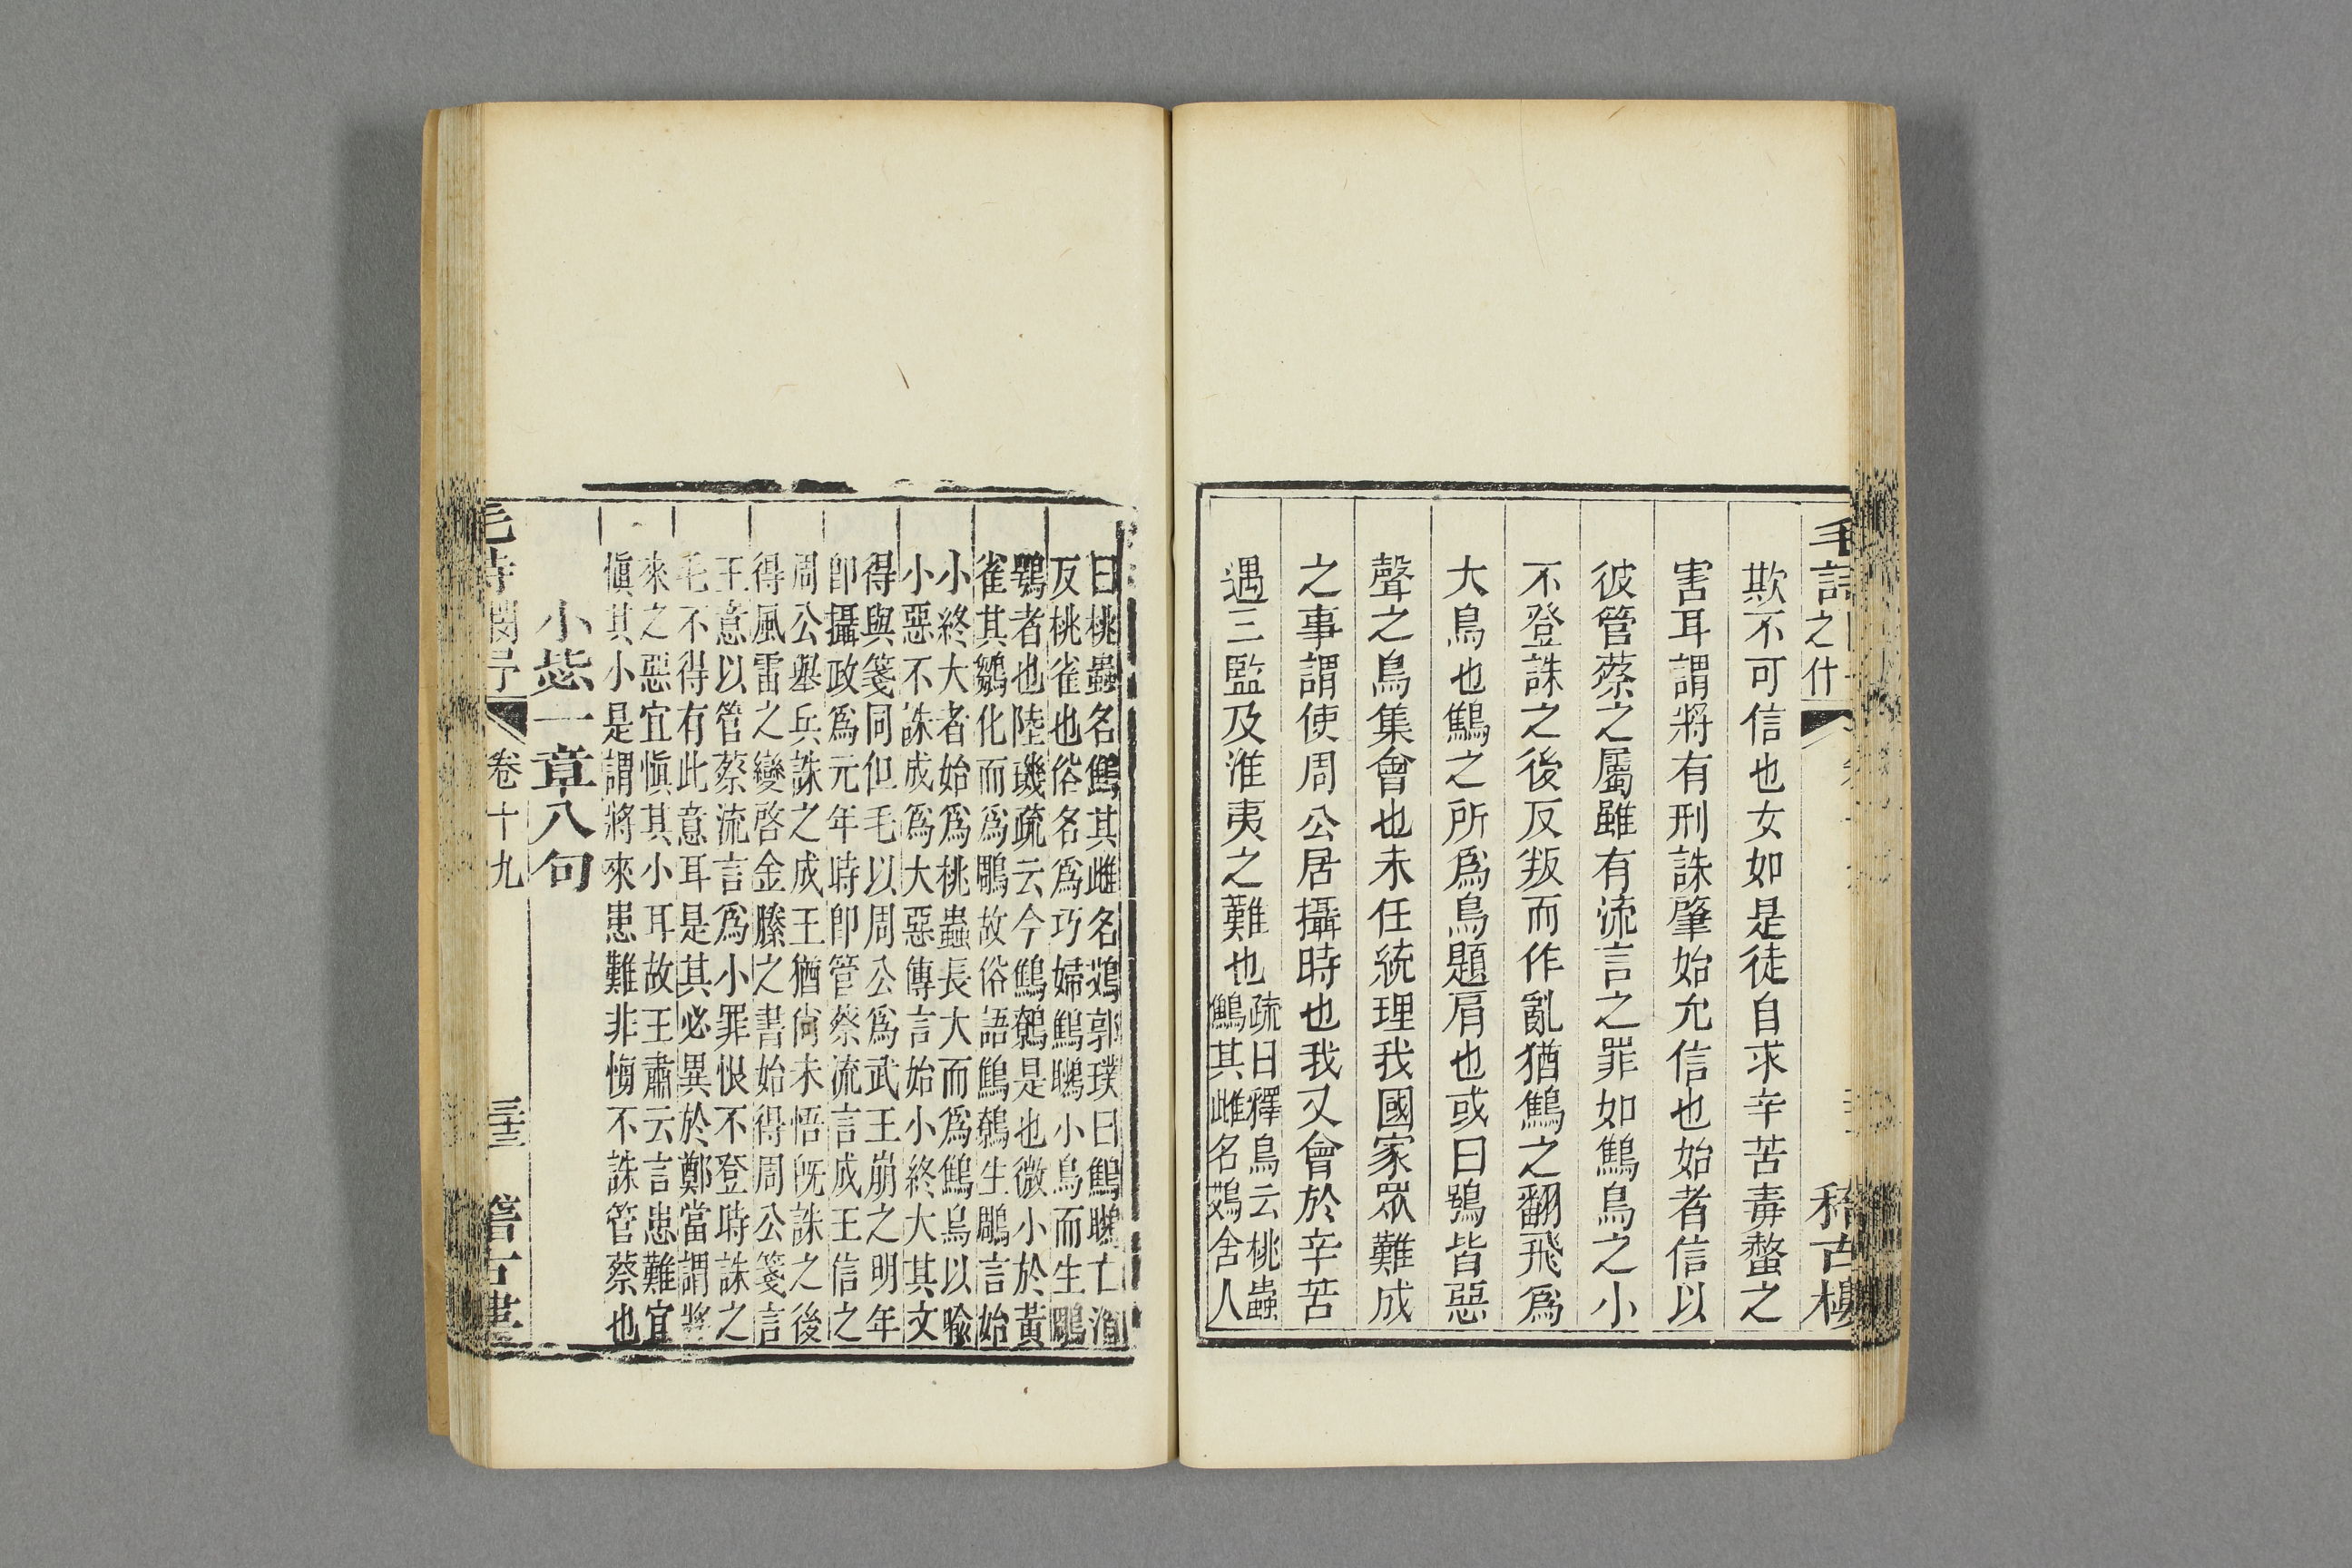 毛詩之什
欺不可信也女如是徒自求辛苦毒螫之
害耳謂將有刑誅肇始允信也始者信以
彼管蔡之屬雖有流言之罪如鷦鳥之小
不登誅之後反叛而作亂猶鷦之翻飛爲
大鳥也鷦之所爲鳥題肩也或曰鴞皆惡
聲之鳥集會也未任統理我國家眾難成
之事謂使周公居攝時也我又會於辛苦
遇三監及淮夷之難也
疏曰釋鳥云桃蟲
鷦其雌名鴱舍人
曰桃蟲名鷦其雌名鴱郭璞曰鷦鷯亡消
反桃雀也俗名爲巧婦鷦鷯小鳥而生鵰
鶚者也陸璣疏云今鷦鷯是也微小於黃
雀其鶵化而爲鵰故俗語鷦鷯生鵰言始
小終大者始爲桃蟲長大而爲鷦鳥以喻
小惡不誅成爲大惡傳言始小終大其文
得與箋同但毛以周公爲武王崩之明年
卽攝政爲元年時卽管蔡流言成王信之
周公舉兵誅之成王猶尙未悟旣誅之後
得風雷之變啓金縢之書始得周公箋言
王意以管蔡流言爲小罪恨不登時誅之
毛不得有此意耳是其必異於鄭當謂將
來之惡宜愼其小耳故王肅云言患難宜
愼其小是謂將來患難非悔不誅管蔡也
小毖一章八句
卷十九
三十三